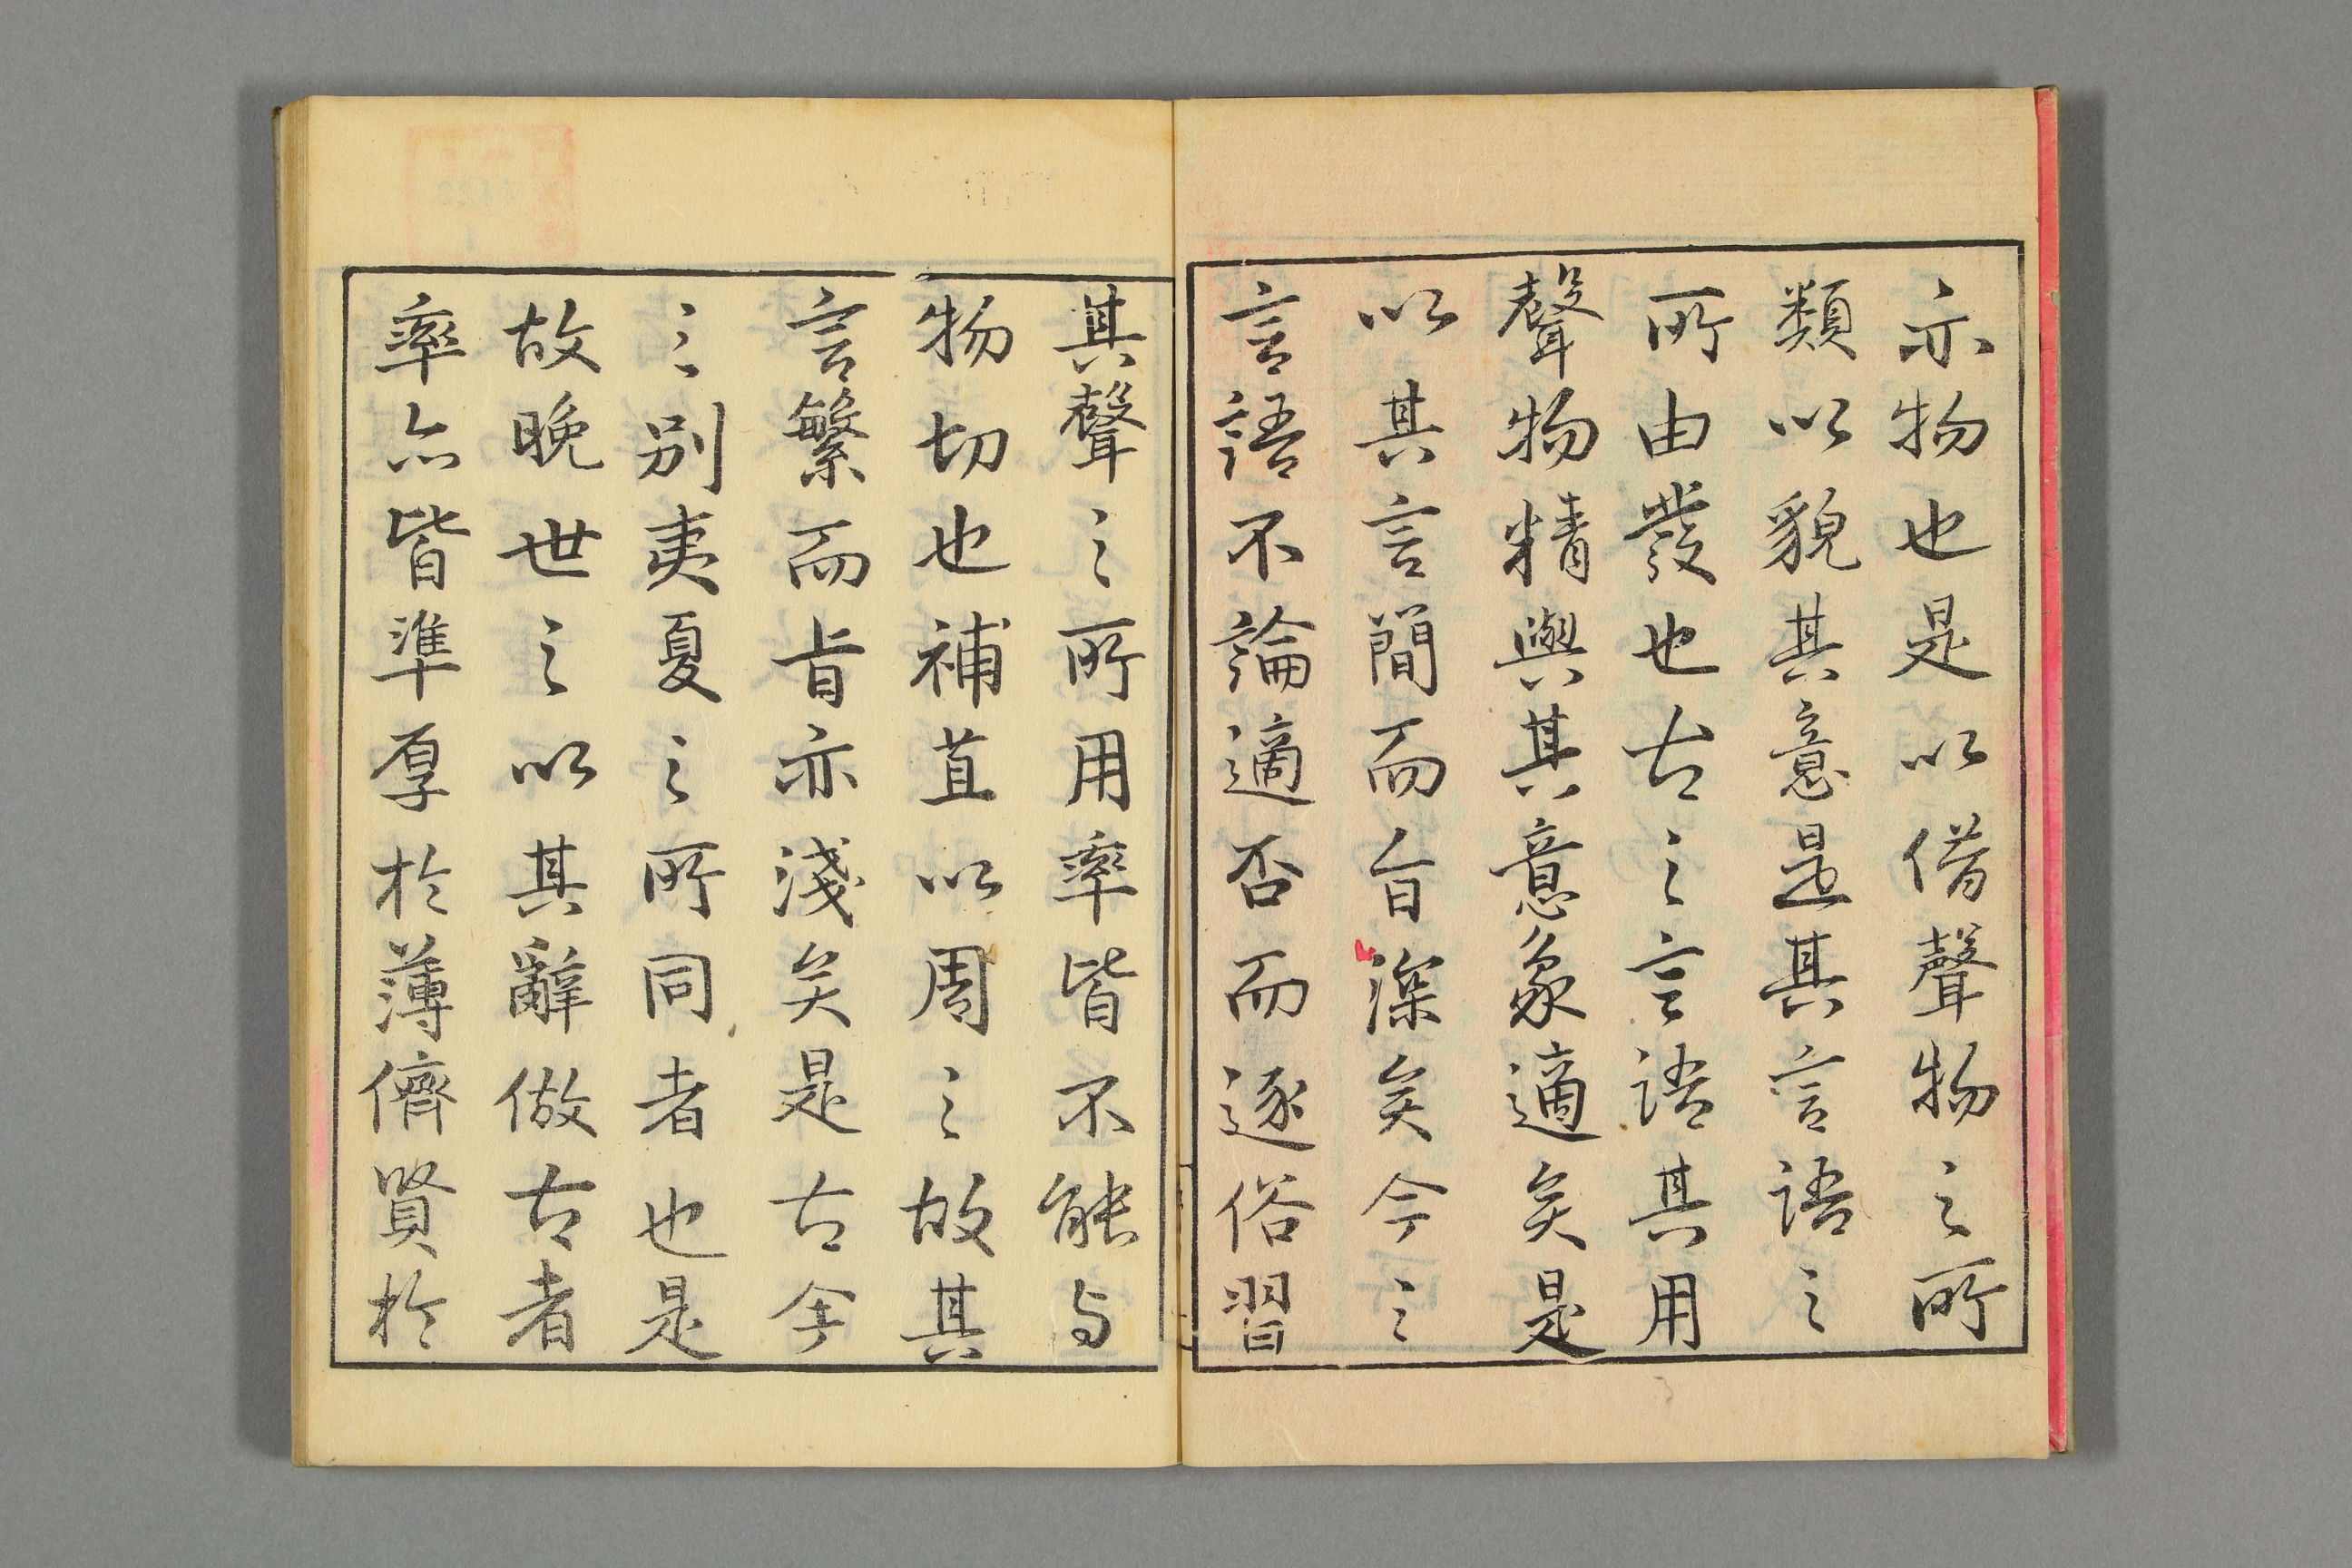 亦物也是以借聲物之所
類以貌其意是其言語之
所由發也古之言語其用
聲物精與其意象適矣是
以其言簡而旨深矣今之
言語不論適否而逐俗習
其聲之所用率皆不能与
物切也補苴以周之故其
言繁而旨亦淺矣是古今
之別夷夏之所同者也是
故晚世之以其辭倣古者
率亦皆準厚於薄儕賢於